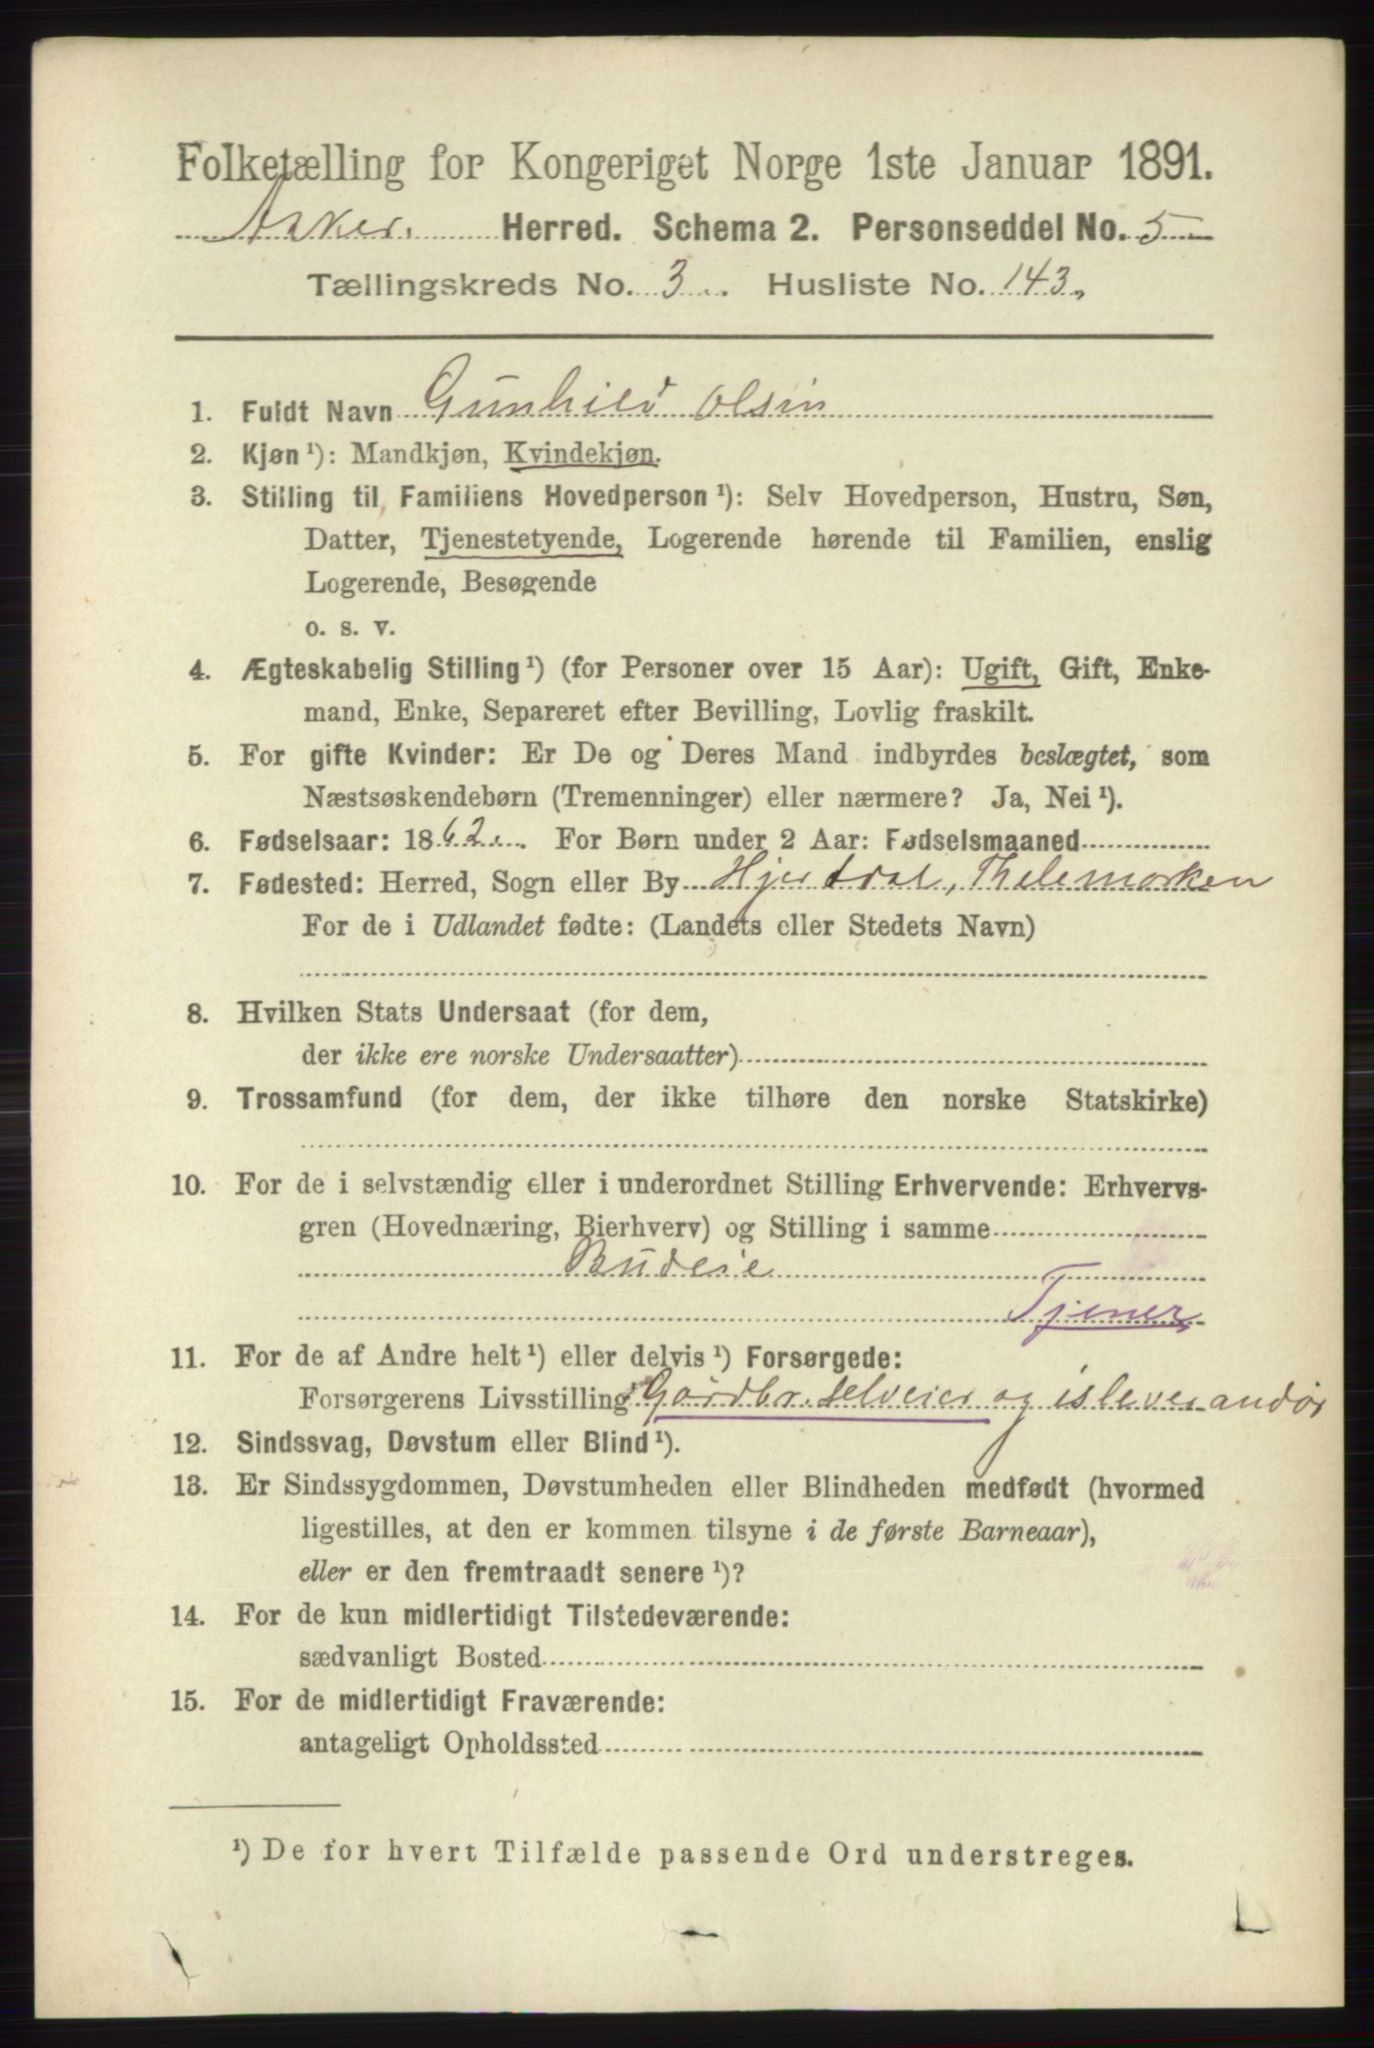 Folketælling for Kongeriget Norge 1ste Januar 1891.
Asker. Herred. Schema 2. Personseddel No. 5
Tællingskreds No. 3. Husliste No. 143,
1. Fuldt Navn Gunhild Olsen
2. Kjøn ¹): Mandkjøn, Kvindekjøn.
3. Stilling til Familiens Hovedperson ¹): Selv Hovedperson, Hustru, Søn,
Datter, Tjenestetyende, Logerende hørende til Familien, enslig
Logerende, Besøgende
o. s. v.
4. Ægteskabelig Stilling ¹) (for Personer over 15 Aar): Ugift, Gift, Enke-
mand, Enke, Separeret efter Bevilling, Lovlig fraskilt.
5. For gifte Kvinder: Er De og Deres Mand indbyrdes beslægtet, som
Næstsøskendebørn (Tremenninger) eller nærmere? Ja, Nei ¹).
6. Fødselsaar: 1862. For Børn under 2 Aar: Fødselsmaaned
7. Fødested: Herred, Sogn eller By Hjertdal, Thelemarken
For de i Udlandet fødte: (Landets eller Stedets Navn)
8. Hvilken Stats Undersaat (for dem,
der ikke ere norske Undersaatter)
9. Trossamfund (for dem, der ikke tilhøre den norske Statskirke)
10. For de i selvstændig eller i underordnet Stilling Erhvervende: Erhvervs-
gren (Hovednæring, Bierhverv) og Stilling i samme
Budeie
Tjener
11. For de af Andre helt ¹) eller delvis ¹) Forsørgede:
Forsørgerens Livsstilling Gårdbr. selveier og isleverandør
12. Sindssvag, Døvstum eller Blind ¹).
13. Er Sindssygdommen, Døvstumheden eller Blindheden medfødt (hvormed
ligestilles, at den er kommen tilsyne i de første Barneaar),
eller er den fremtraadt senere ¹)?
14. For de kun midlertidigt Tilstedeværende:
sædvanligt Bosted
15. For de midlertidigt Fraværende:
antageligt Opholdssted
¹) De for hvert Tilfælde passende Ord understreges.